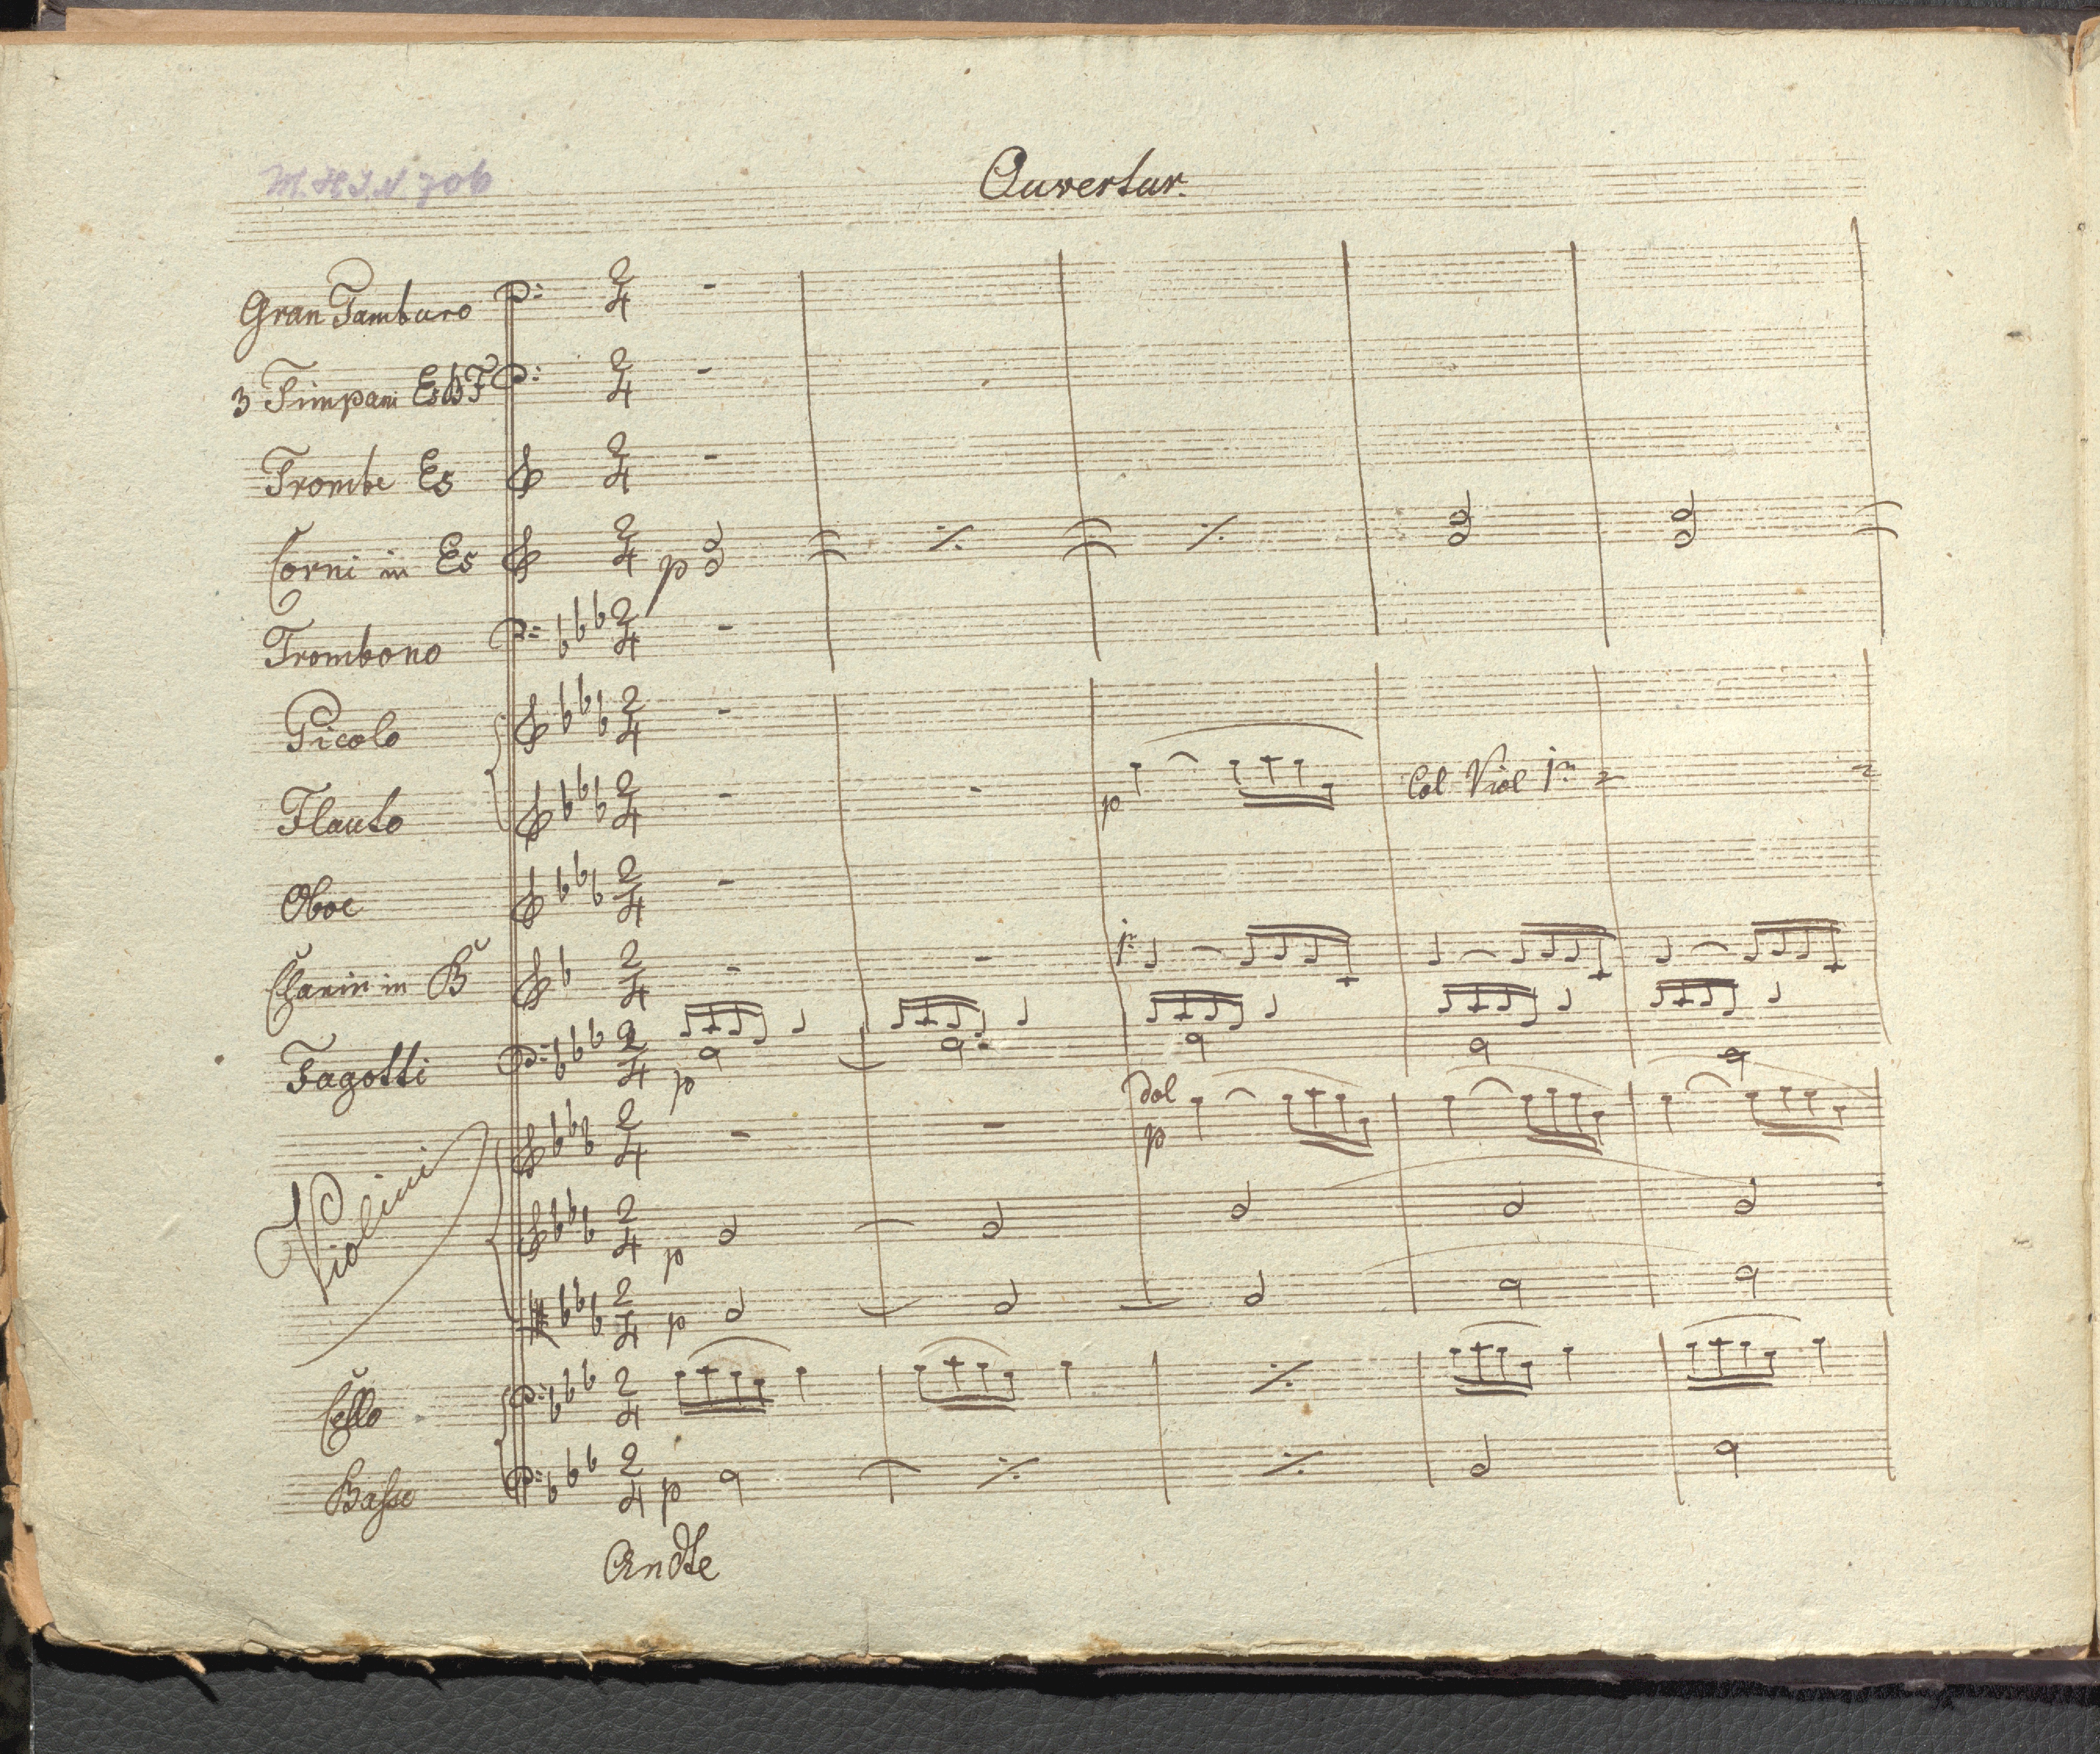 M.H.I.N 706
Ouvertur.
Gran Tamburo
3 Timpani Es B F
Trombe Es
Corni in Es
p
Trombono
Picolo
Flauto
p
Col Viol 1mo
Oboe
Clarin in B
1mo
Fagotti
p
dol
p
Violini
p
p
Cello
Basso
p
Andte